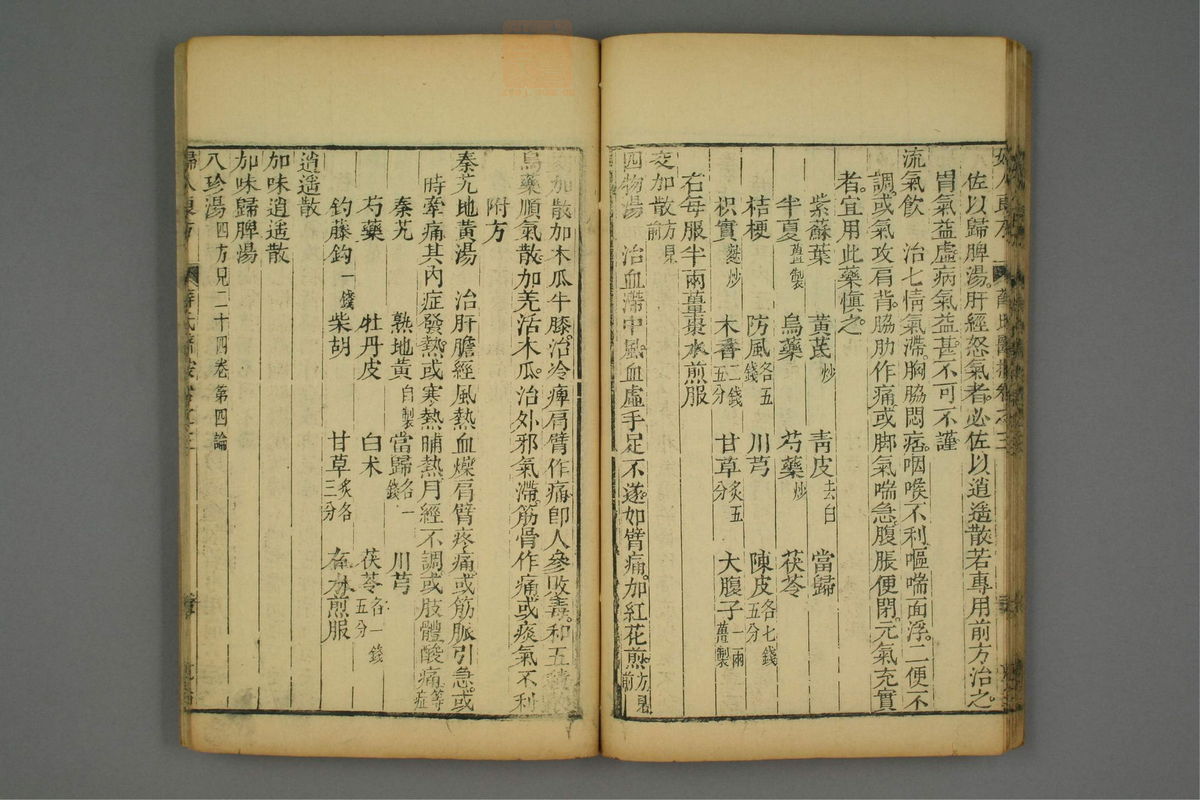 佐以歸脾湯。肝經怒氣者。必佐以逍遥散若專用前方治之。
胃氣益虛病氣益甚不可不謹
流氣飲　治七情氣滯。胸脇悶痞。咽喉不利嘔喘面浮。二便不
調。或氣攻肩背。脇肋作痛或脚氣喘急腹脹便閉。元氣充實
者。宜用此藥愼之。
紫蘇葉　黃芪炒　青皮去白　當歸
半夏薑製　烏藥　芍藥炒　茯苓
桔梗　防風各五錢　川芎　陳皮各七錢五分
枳實麩炒　木香二錢五分　甘草炙五分　大腹子一兩薑製
右每服半兩薑棗水煎服
交加散方見前
四物湯　治血滯中風。血虛手足不遂。如臂痛。加紅花煎。方見前
加散加木瓜牛膝。治冷痺肩臂作痛卽人參敗毒。和五
烏藥順氣散加羌活木瓜。治外邪氣滯。筋骨作痛或痰氣不利
附方
秦艽地黃湯　治肝膽經風熱血燥肩臂疼痛或筋脈引急。或
時牽痛其內症發熱。或寒熱晡熱月經不調或肢體酸痛等症
秦艽　熟地黃自製　當歸各一錢　川芎
芍藥　牡丹皮　白朮　茯苓各一錢五分
釣藤鈎一錢　柴胡　甘草炙各三分　水煎服
逍遥散
加味逍遥散
加味歸脾湯
八珍湯四方見二十四卷第四論
婦人良方